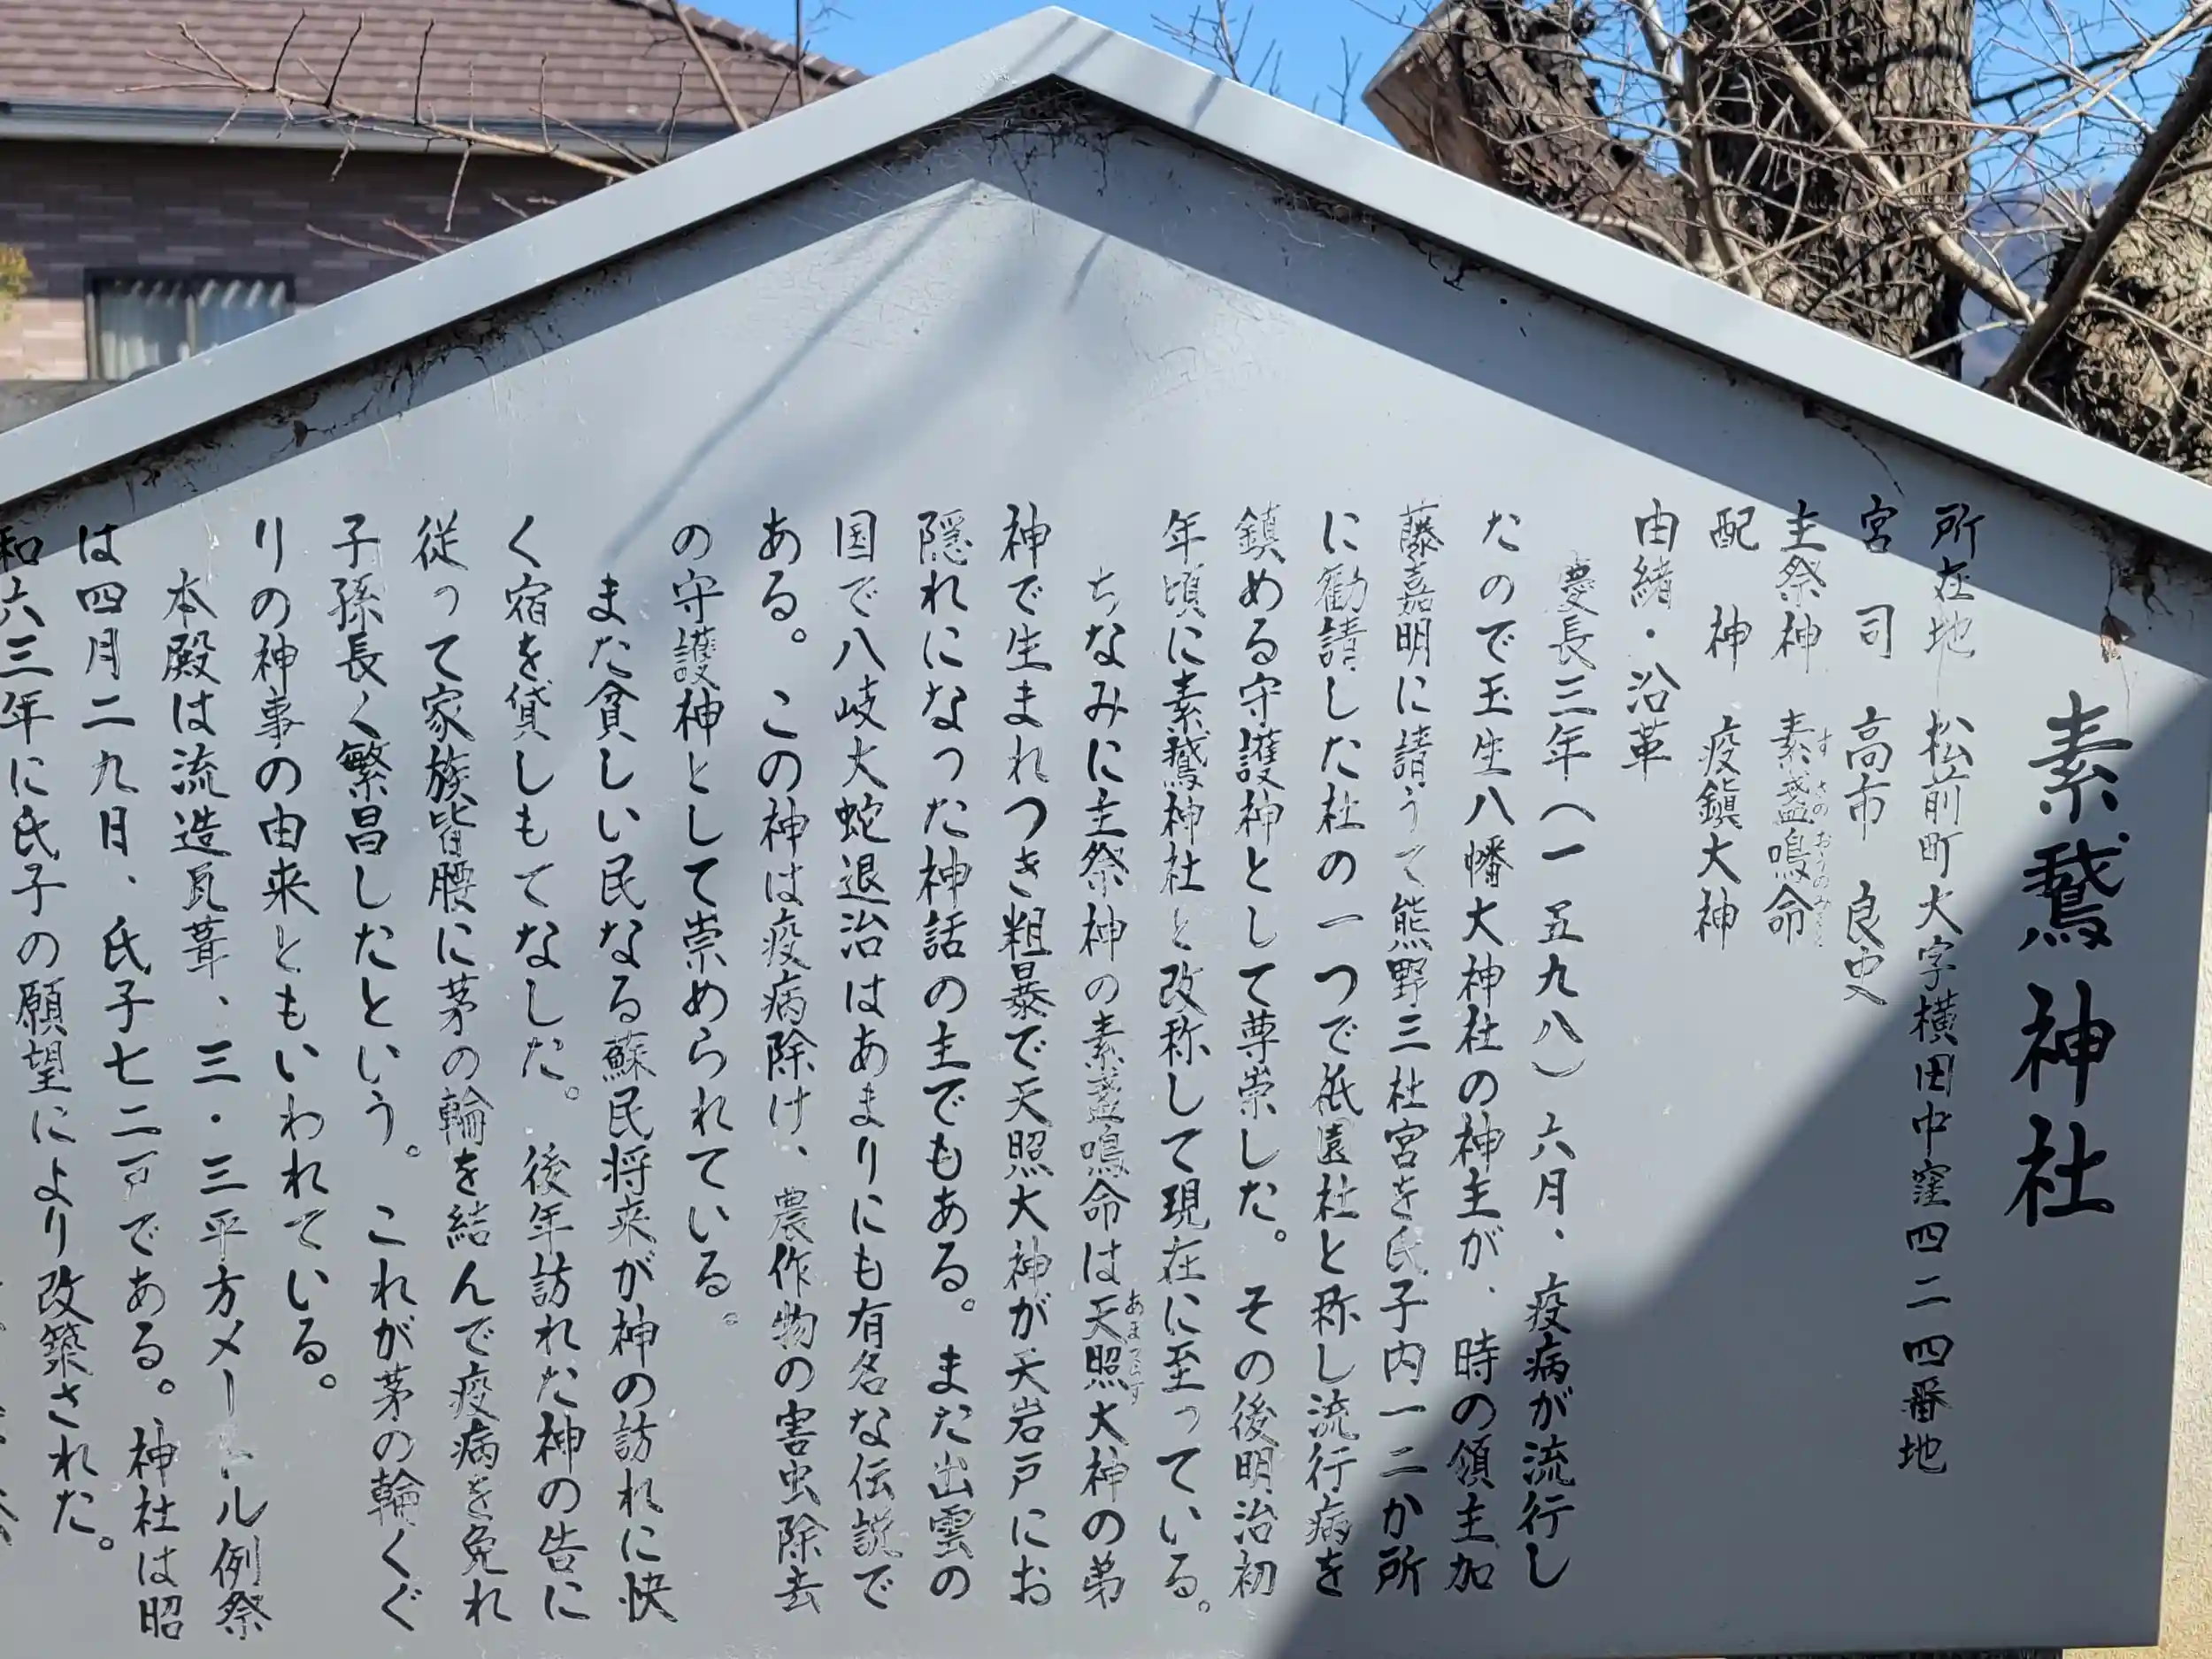 素鵞神社
所在地 松前町大字横田中窪四二四番地
宮司 高市 良史
主祭神 素盞嗚命
すさのおうのみこと
配神 疫鎮大神
由緒・沿革
慶長三年(一五九八)六月、疫病が流行し
たので玉生八幡大神社の神主が、時の領主加
藤嘉明に請うて熊野三社宮を氏子内一二か所
に勧請した社の一つで祇園社と称し流行病を
鎮める守護神として尊崇した。その後明治初
年頃に素鵞神社と改称して現在に至っている。
ちなみに主祭神の素盞嗚命は天照大神の弟
あまてらす
神で生まれつき粗暴で天照大神が天岩戸にお
隠れになった神話の主でもある。また出雲の
国で八岐大蛇退治はあまりにも有名な伝説で
ある。この神は疫病除け、農作物の害虫除去
の守護神として崇められている。
また貧しい民なる蘇民将来が神の訪れに快
く宿を貸しもてなした。後年訪れた神の告に
従って家族皆腰に茅の輪を結んで疫病を免れ
子孫長く繁昌したという。これが茅の輪くぐ
りの神事の由来ともいわれている。
本殿は流造瓦葺、三・三平方メートル例祭
は四月二九日、氏子七二戸である。神社は昭
和六三年に氏子の願望により改築された。